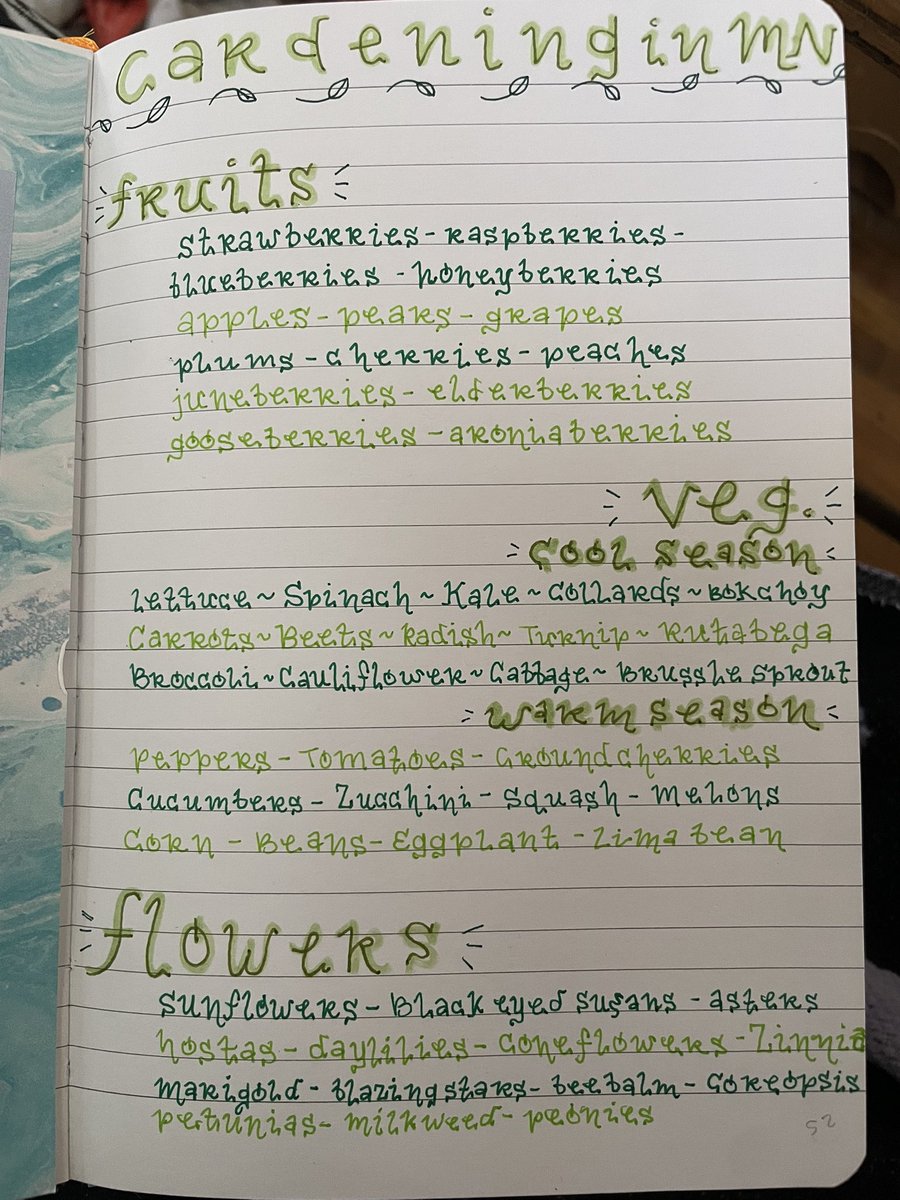 Gardening in MN
fruits
strawberries - raspberries -
blueberries - honeyberries
apples - pears - grapes
plums - cherries - peaches
juneberries - elderberries
gooseberries - aroniaberries
veg.
cool season
Lettuce ~ Spinach ~ Kale ~ Collards ~ Bok choy
Carrots ~ Beets ~ Radish ~ Turnip ~ Rutabega
Broccoli ~ Cauliflower ~ Cabbage ~ Brussle Sprout
warm season
Peppers - Tomatoes - Groundcherries
Cucumbers - Zucchini - Squash - Melons
Corn - Beans - Eggplant - Lima bean
flowers
sunflowers - Black eyed susans - asters
hostas - daylilies - coneflowers - Zinnia
marigold - blazing stars - beebalm - coreopsis
petunias - milkweed - peonies
52